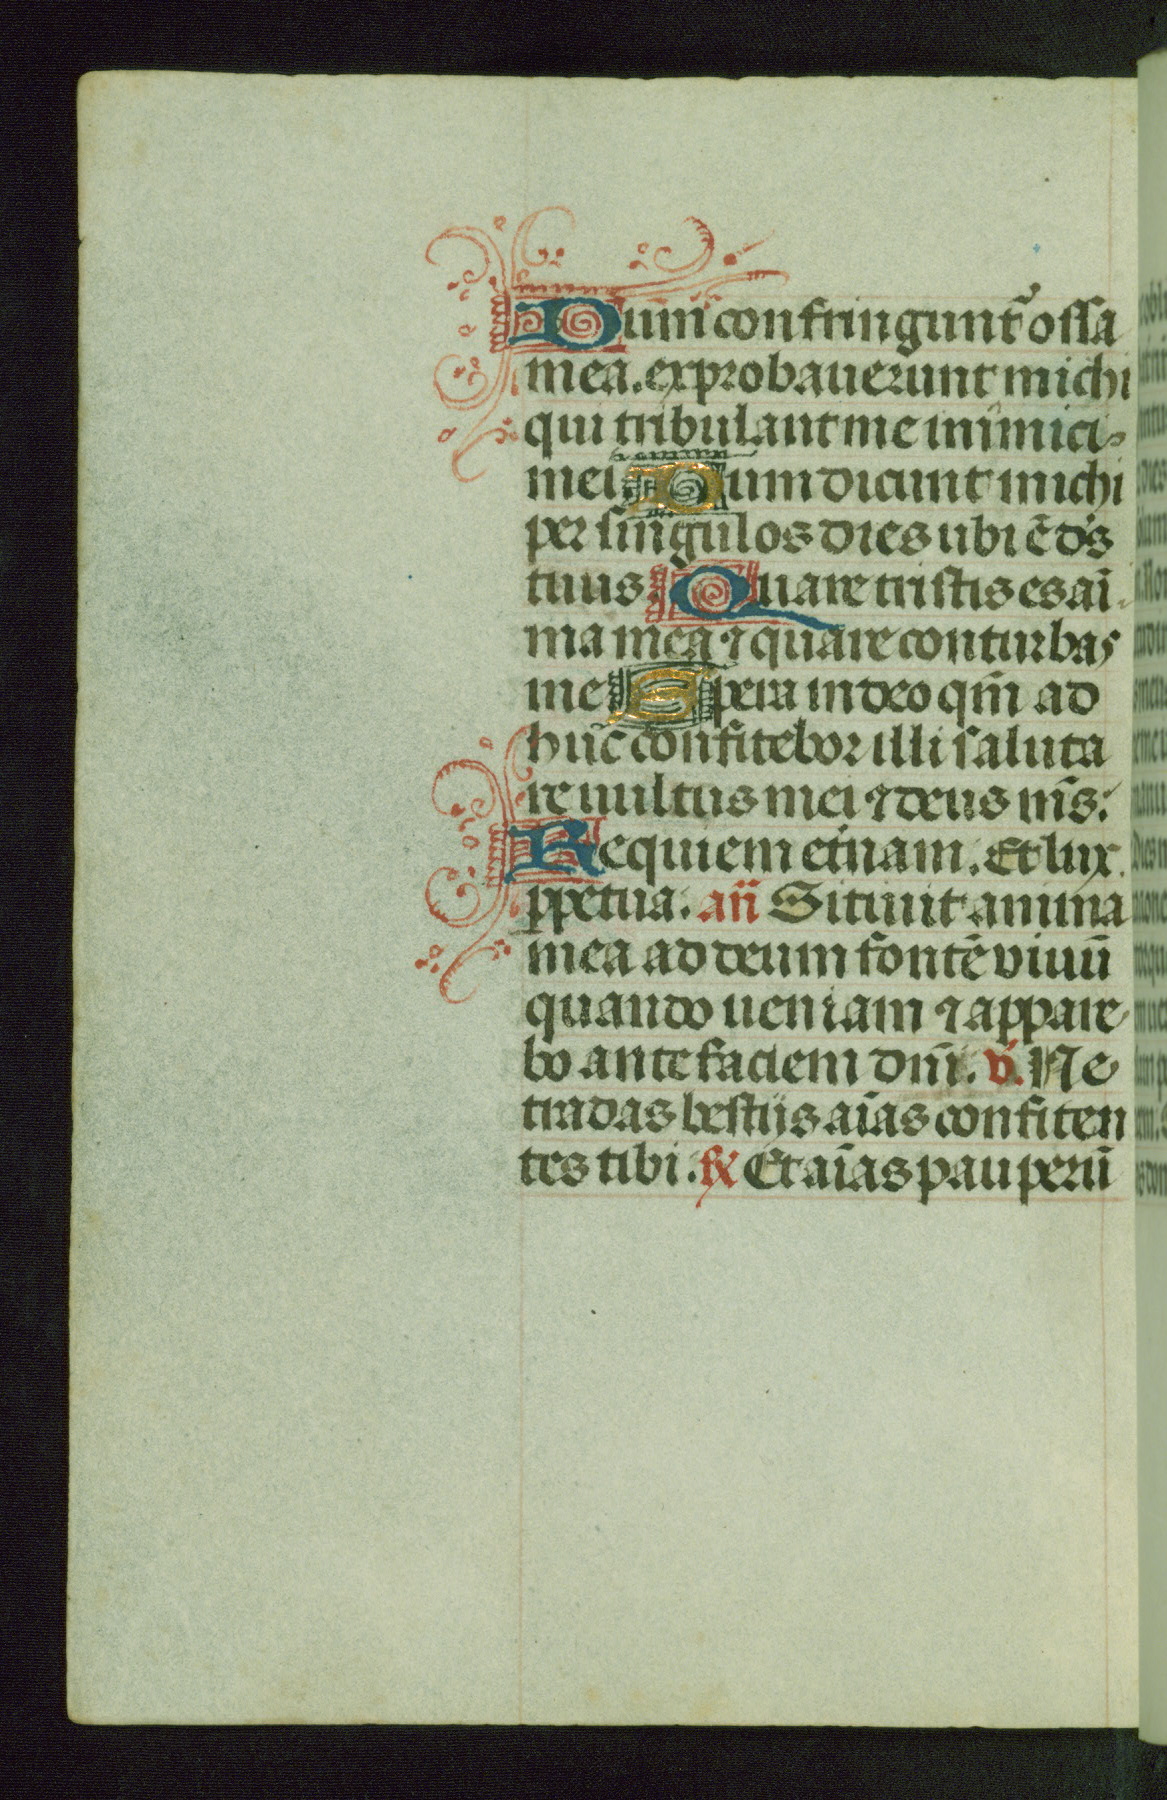 Dum̄ confringunt᷑ ossa
mea. exprobauerunt michi
qui tribulant me inimici
mei. Dum dicunt michi
per singulos dies ubi ē d̄s
tuus. Quare tristis es ai̅
ma mea ⁊ quare conturbas
me Spera in deo qm̅ ad
huc confitebor illi saluta
re uultus mei ⁊ deus m̅s:
Requiem et̛nam. Et lux
ꝑpetua. an̅ Sitiuit anima
mea ad deum fontē viuū
quando ueniam ⁊ appare
bo ante faciem dn̅i. v̛. Ne
tradas bestijs ai̅as confiten
tes tibi. ℟ Et ai̅as pauperū